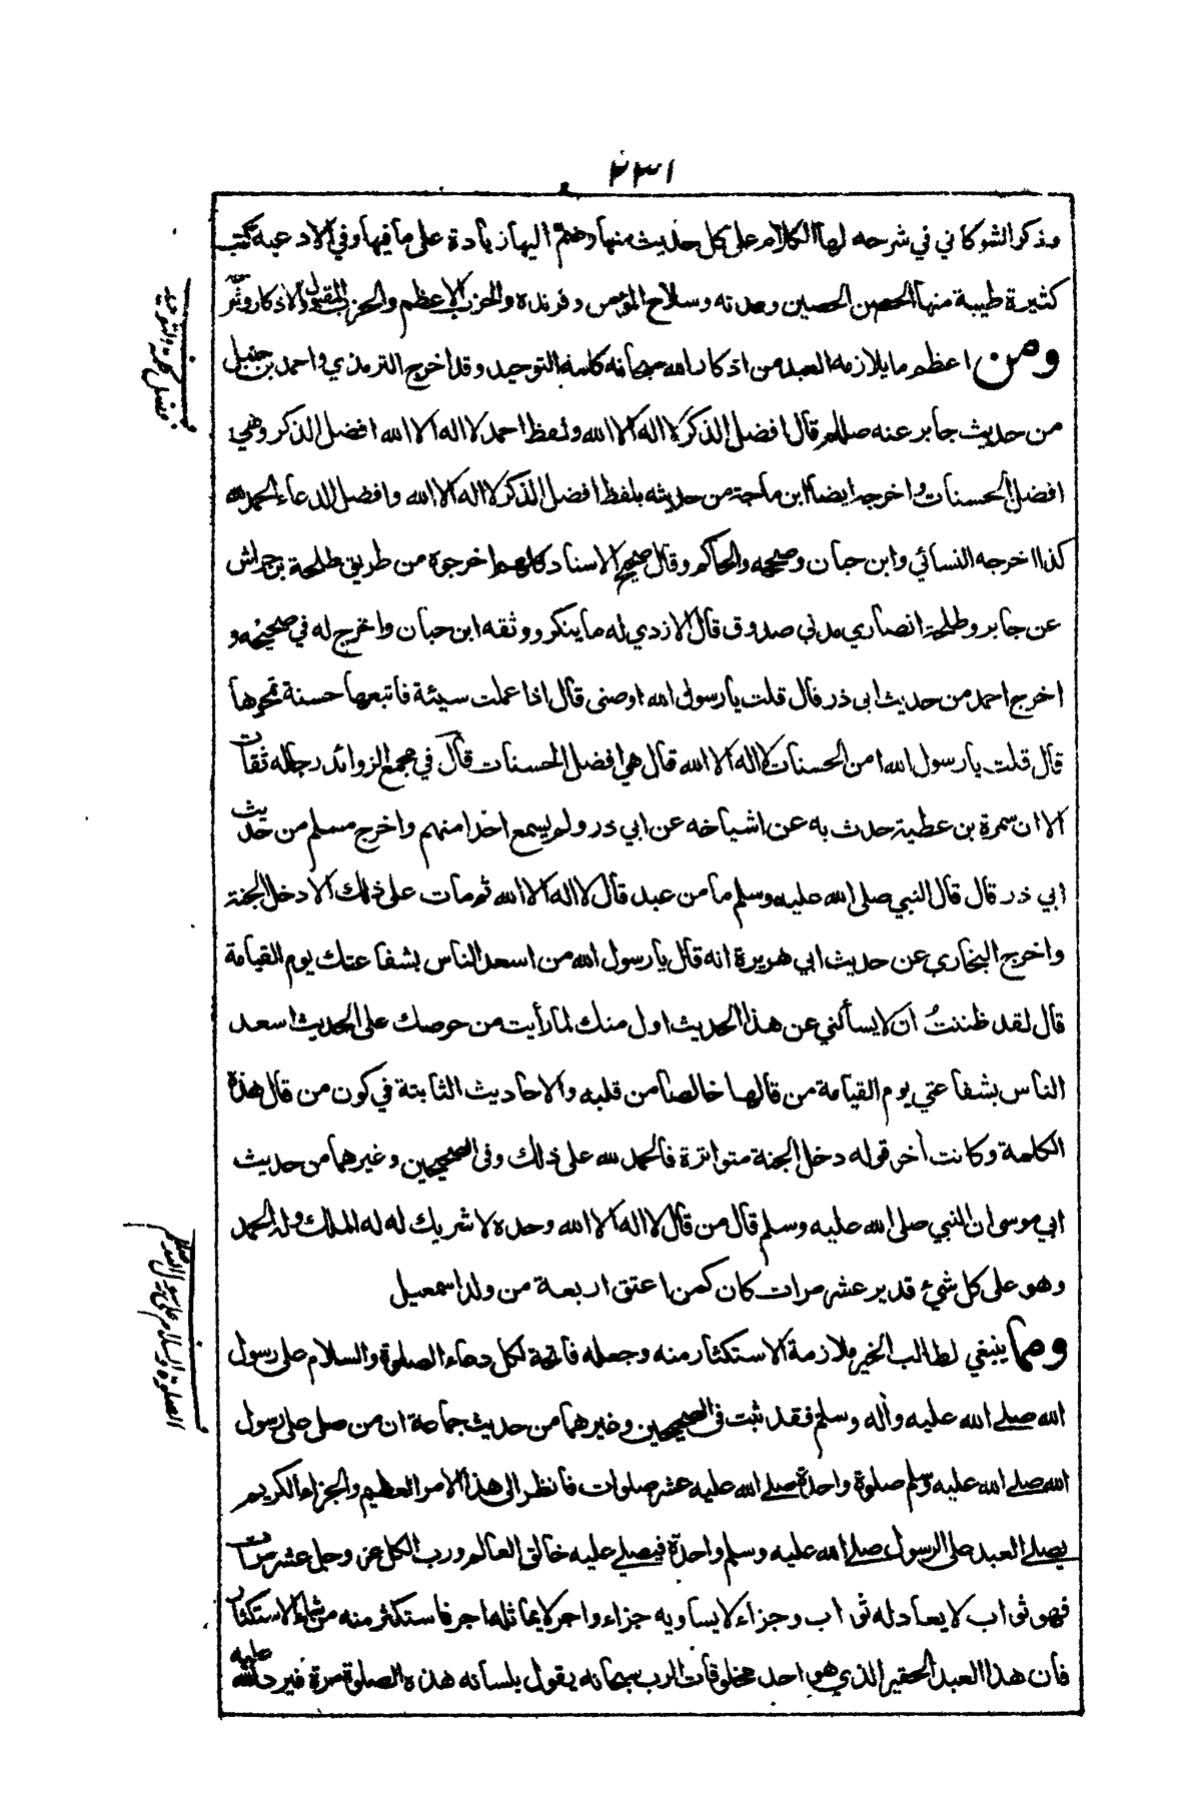 ٢٣١
وذكر الشوكاني في شرحه لها الكلام على كل حديث منها وضم اليها زيادة على ما فيها وفي الادعية كتب
كثيرة طيبة منها الحصن الحصين وعدته وسلاح المؤمن وفرنده والحزب الاعظم والحزب المقبول والاذكار وغير
ومن اعظم ما يلازمه العبد من اذكار الله سبحانه كلمة التوحيد وقد اخرج الترمذي واحمد بن حنبل
من حديث جابر عنه صللم قال افضل الذكر لا اله الا الله ولفظ احمد لا اله الا الله افضل الذكر وهي
افضل الحسنات واخرجه ايضا ابن ماجة من حديثه بلفظ افضل الذكر لا اله الا الله وافضل الدعاء الحمد لله
كذا اخرجه النسائي وابن حبان وصححه والحاكم وقال صحيح الاسناد كلهم اخرجوه من طريق طلحة بن خراش
عن جابر وطلحة انصاري مدني صدوق قال الازدي له ما ينكر ووثقه ابن حبان واخرج له في صحيحه و
اخرج احمد من حديث ابي ذر قال قلت يا رسول الله اوصني قال اذا عملت سيئة فاتبعها حسنة تمحوها
قال قلت يا رسول الله امن الحسنات لا اله الا الله قال هي افضل الحسنات قال في مجمع الزوائد رجاله ثقات
الا ان سمرة بن عطية حدث به عن اشياخه عن ابي ذر ولم يسمع احدا منهم واخرج مسلم من حديث
ابي ذر قال قال النبي صلى الله عليه وسلم ما من عبد قال لا اله الا الله ثم مات على ذلك الا دخل الجنة
واخرج البخاري عن حديث ابي هريرة انه قال يا رسول الله من اسعد الناس بشفاعتك يوم القيامة
قال لقد ظننتُ ان لا يسألني عن هذا الحديث اول منك لما رأيت من حرصك على الحديث اسعد
الناس بشفاعتي يوم القيامة من قالها خالصا من قلبه والاحاديث الثابتة في كون من قال هذه
الكلمة وكانت أخر قوله دخل الجنة متواترة فالحمد لله على ذلك وفى الصحيحين وغيرهما من حديث
ابي موسى ان النبي صلى الله عليه وسلم قال من قال لا اله الا الله وحده لا شريك له له الملك وله الحمد
وهو على كل شيء قدير عشر مرات كان كمن اعتق اربعة من ولد اسمعيل
ومما ينبغي لطالب الخير ملازمة الاستكثار منه وجعله فاتحة لكل دعاء الصلوة والسلام على رسول
الله صلے الله عليه وأله وسلم فقد ثبت فى الصحيحين وغيرهما من حديث جماعة ان من صلى على رسول
الله صلے الله عليه وسلم صلوة واحدة صلے الله عليه عشر صلوات فانظر الى هذا الامر العظيم والجزاء الكريم
يصلے العبد على الرسول صلے الله عليه وسلم واحدة فيصلے عليه خالق العالم ورب الكل عز وجل عشر مرات
فهو ثواب لا يعادله ثواب وجزاء لا يساويه جزاء واجر لا يماثله اجر فاستكثر منه من شاء الاستكثار
فان هذا العبد الحقير الذي هو احد مخلوقات الرب سبحانه يقول بلسانه هذه الصلوة مرة فيرد الله عليه
فضل كلمة التوحيد
الصلوة والسلام على رسول الله صللم